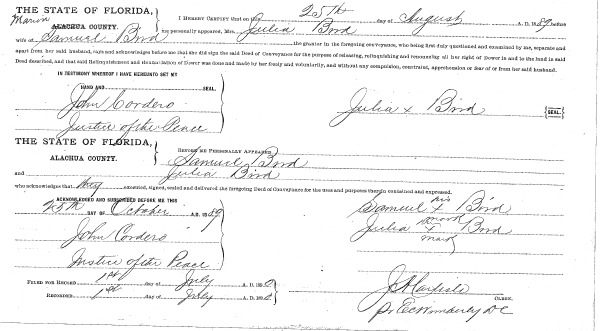 THE STATE OF FLORIDA,
Marion
ALACHUA COUNTY.
I HEREBY CERTIFY that on this 25th day of August A. D. 1889 before
me personally appeared, Mrs. Julia Bird
wife of Samuel Bird the grantor in the foregoing conveyance, who being first duly questioned and examined by me, separate and
apart from her said husband, says and acknowledges before me that she did sign the said Deed of Conveyance for the purpose of releasing, relinquishing and renouncing all her right of Dower in and to the land in said
Deed described, and that said Relinquishment and Renunciation of Dower was done and made by her freely and voluntarily, and without any compulsion, constraint, apprehension or fear of or from her said husband.
IN TESTIMONY WHEREOF I HAVE HEREUNTO SET MY
HAND AND SEAL.
John Cordero
Justice of the Peace
Julia x Bird
SEAL.
THE STATE OF FLORIDA,
ALACHUA COUNTY.
BEFORE ME PERSONALLY APPEARED
Samuel Bird
and Julia Bird
who acknowledges that they executed, signed, sealed and delivered the foregoing Deed of Conveyance for the uses and purposes therein contained and expressed.
ACKNOWLEDGED AND SUBSCRIBED BEFORE ME THIS
25th DAY OF October A.D. 1889
John Cordero
Justice of the Peace
his
Samuel x Bird
mark
Julia x Bird
mark
FILED FOR RECORD 1st day of July A. D. 18
RECORDED 1st day of July A.D. 18
CLERK.
D C